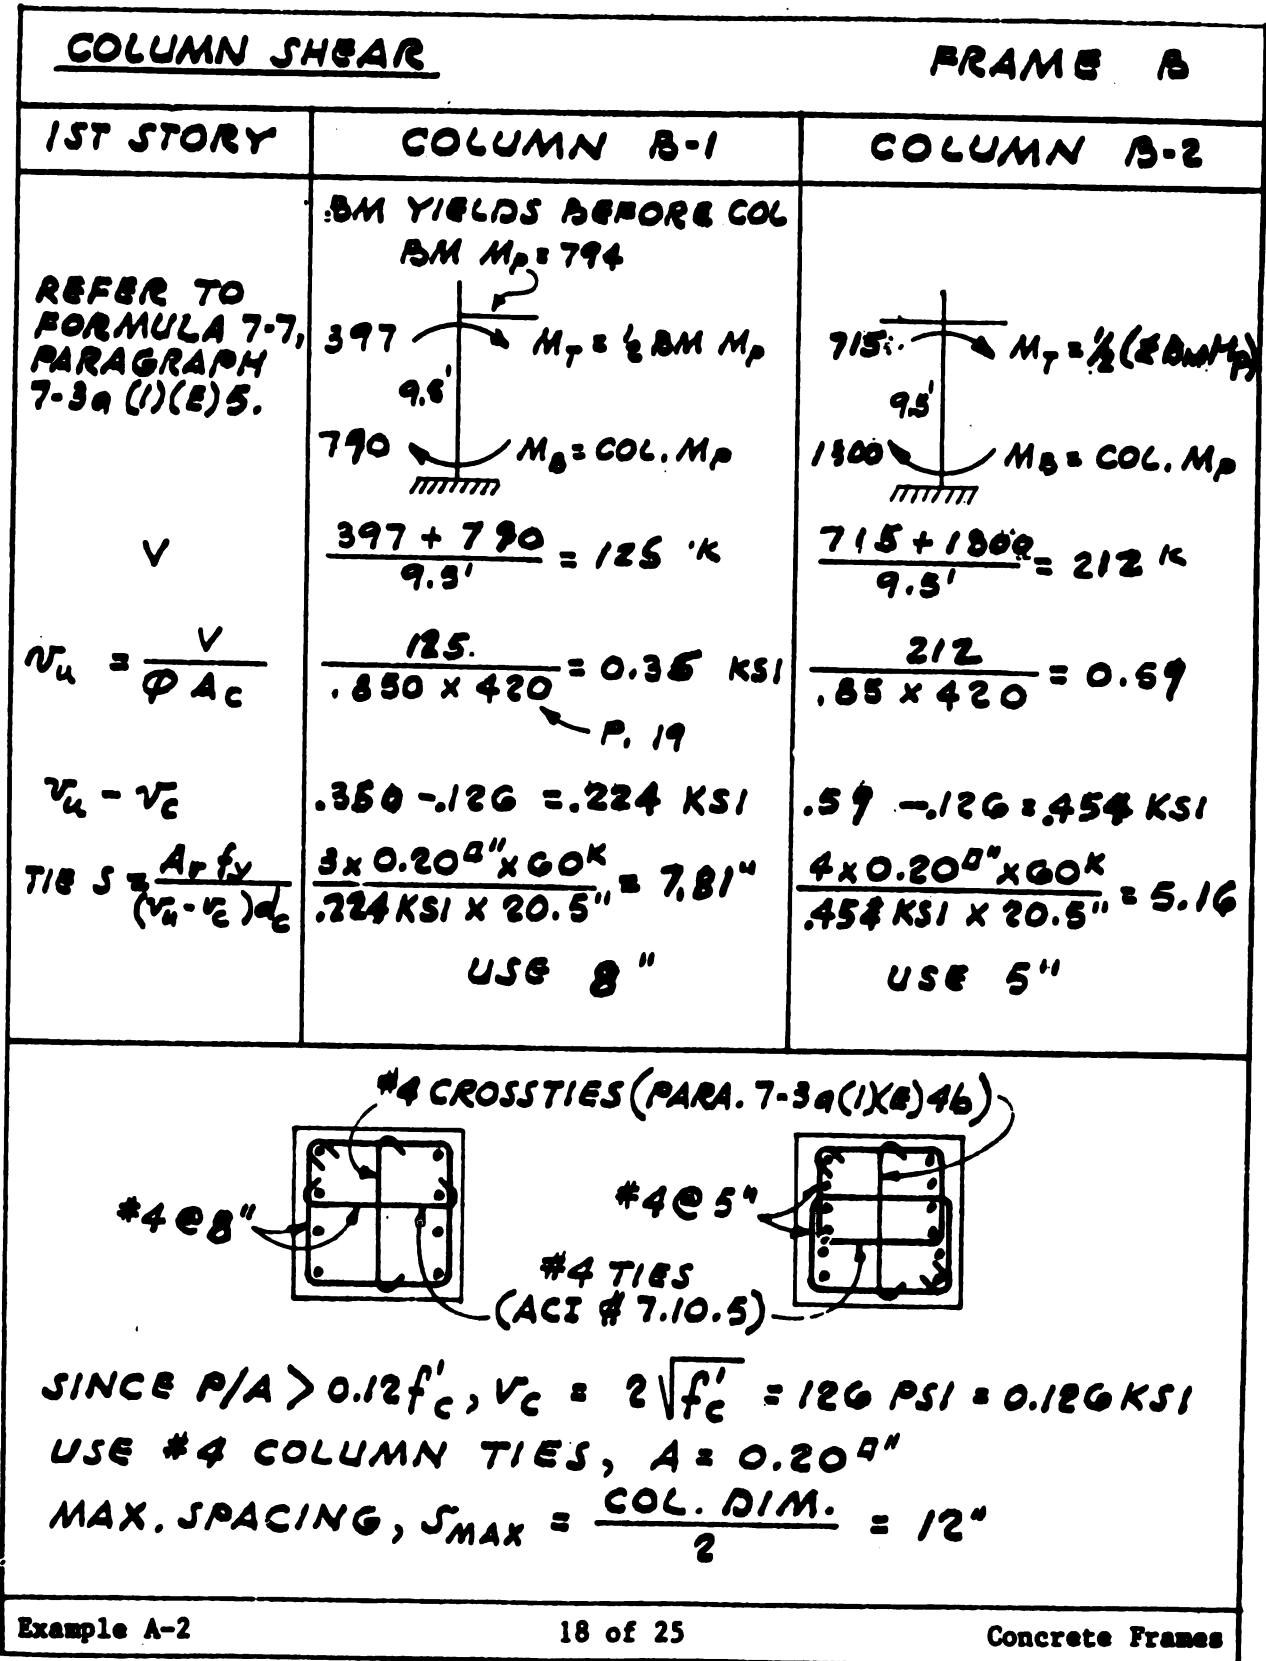 COLUMN SHEAR FRAME B
1ST STORY COLUMN B-1 COLUMN B-2
BM YIELDS BEFORE COL
BM Mp = 794
REFER TO
FORMULA 7-7,
PARAGRAPH
7-3a (1)(E)5.
397 M_T = ½ BM Mp
9.5'
790 M_B = COL. Mp
715 M_T = ½(Σ BM Mp)
9.5'
1300 M_B = COL. Mp
V
397 + 790 / 9.5' = 125 K
715 + 1300 / 9.5' = 212 K
v_u = V / Φ A_c
125. / .850 x 420 = 0.35 KSI
P. 19
212 / .85 x 420 = 0.59
v_u - v_c
.350 - .126 = .224 KSI
.59 - .126 = .454 KSI
TIE S = A_v f_y / (v_u - v_c) d_c
3 x 0.20□" x 60K / .224 KSI X 20.5" = 7.81"
4 x 0.20□" x 60K / .454 KSI X 20.5" = 5.16
USE 8"
USE 5"
#4 CROSSTIES (PARA. 7-3a(1)(E)4b)
#4 @ 8"
#4 @ 5"
#4 TIES
(ACI # 7.10.5)
SINCE P/A > 0.12 f'c, v_c = 2 √f'c = 126 PSI = 0.126 KSI
USE #4 COLUMN TIES, A = 0.20□"
MAX. SPACING, S_MAX = COL. DIM. / 2 = 12"
Example A-2 18 of 25 Concrete Frames